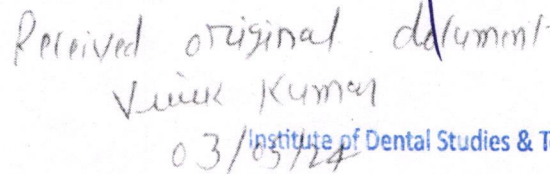 Received original document
Vivek Kumar
03/05/24
Institute of Dental Studies & T